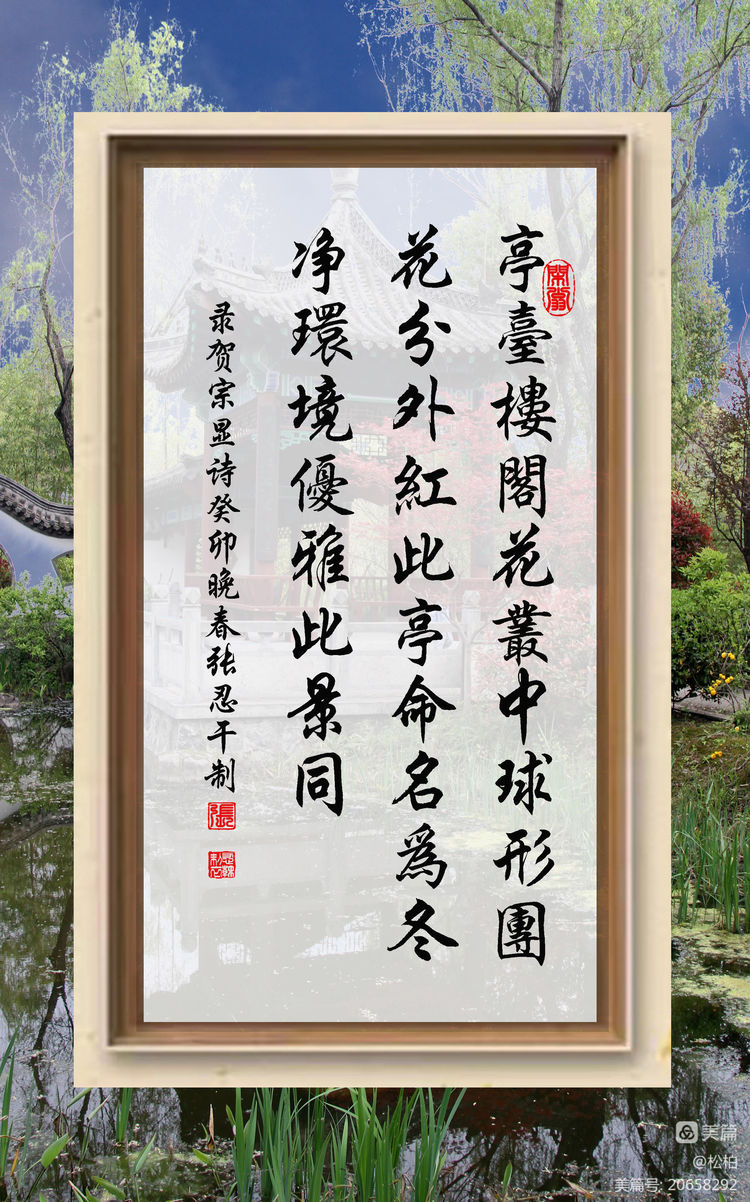 亭臺樓閣花叢中球形團
花分外紅此亭命名為冬
净環境優雅此景同
录贺宗显诗癸卯晚春张忍干制
張
美篇
@松柏
美篇号: 20658292